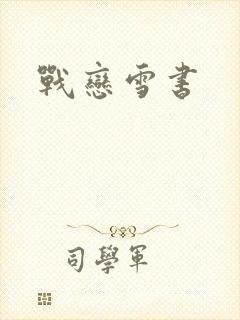 戰戀雪書
司學軍